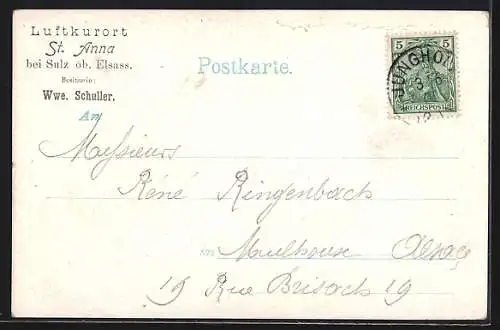 Luftkurort
St. Anna
bei Sulz ob. Elsass.
Besitzerin:
Wwe. Schuller.
Postkarte.
5 5
REICHSPOST
JUNGHOL
An
Messieurs
René Ringenbach
in Mulhouse Alsace
19 Rue Brisach 19